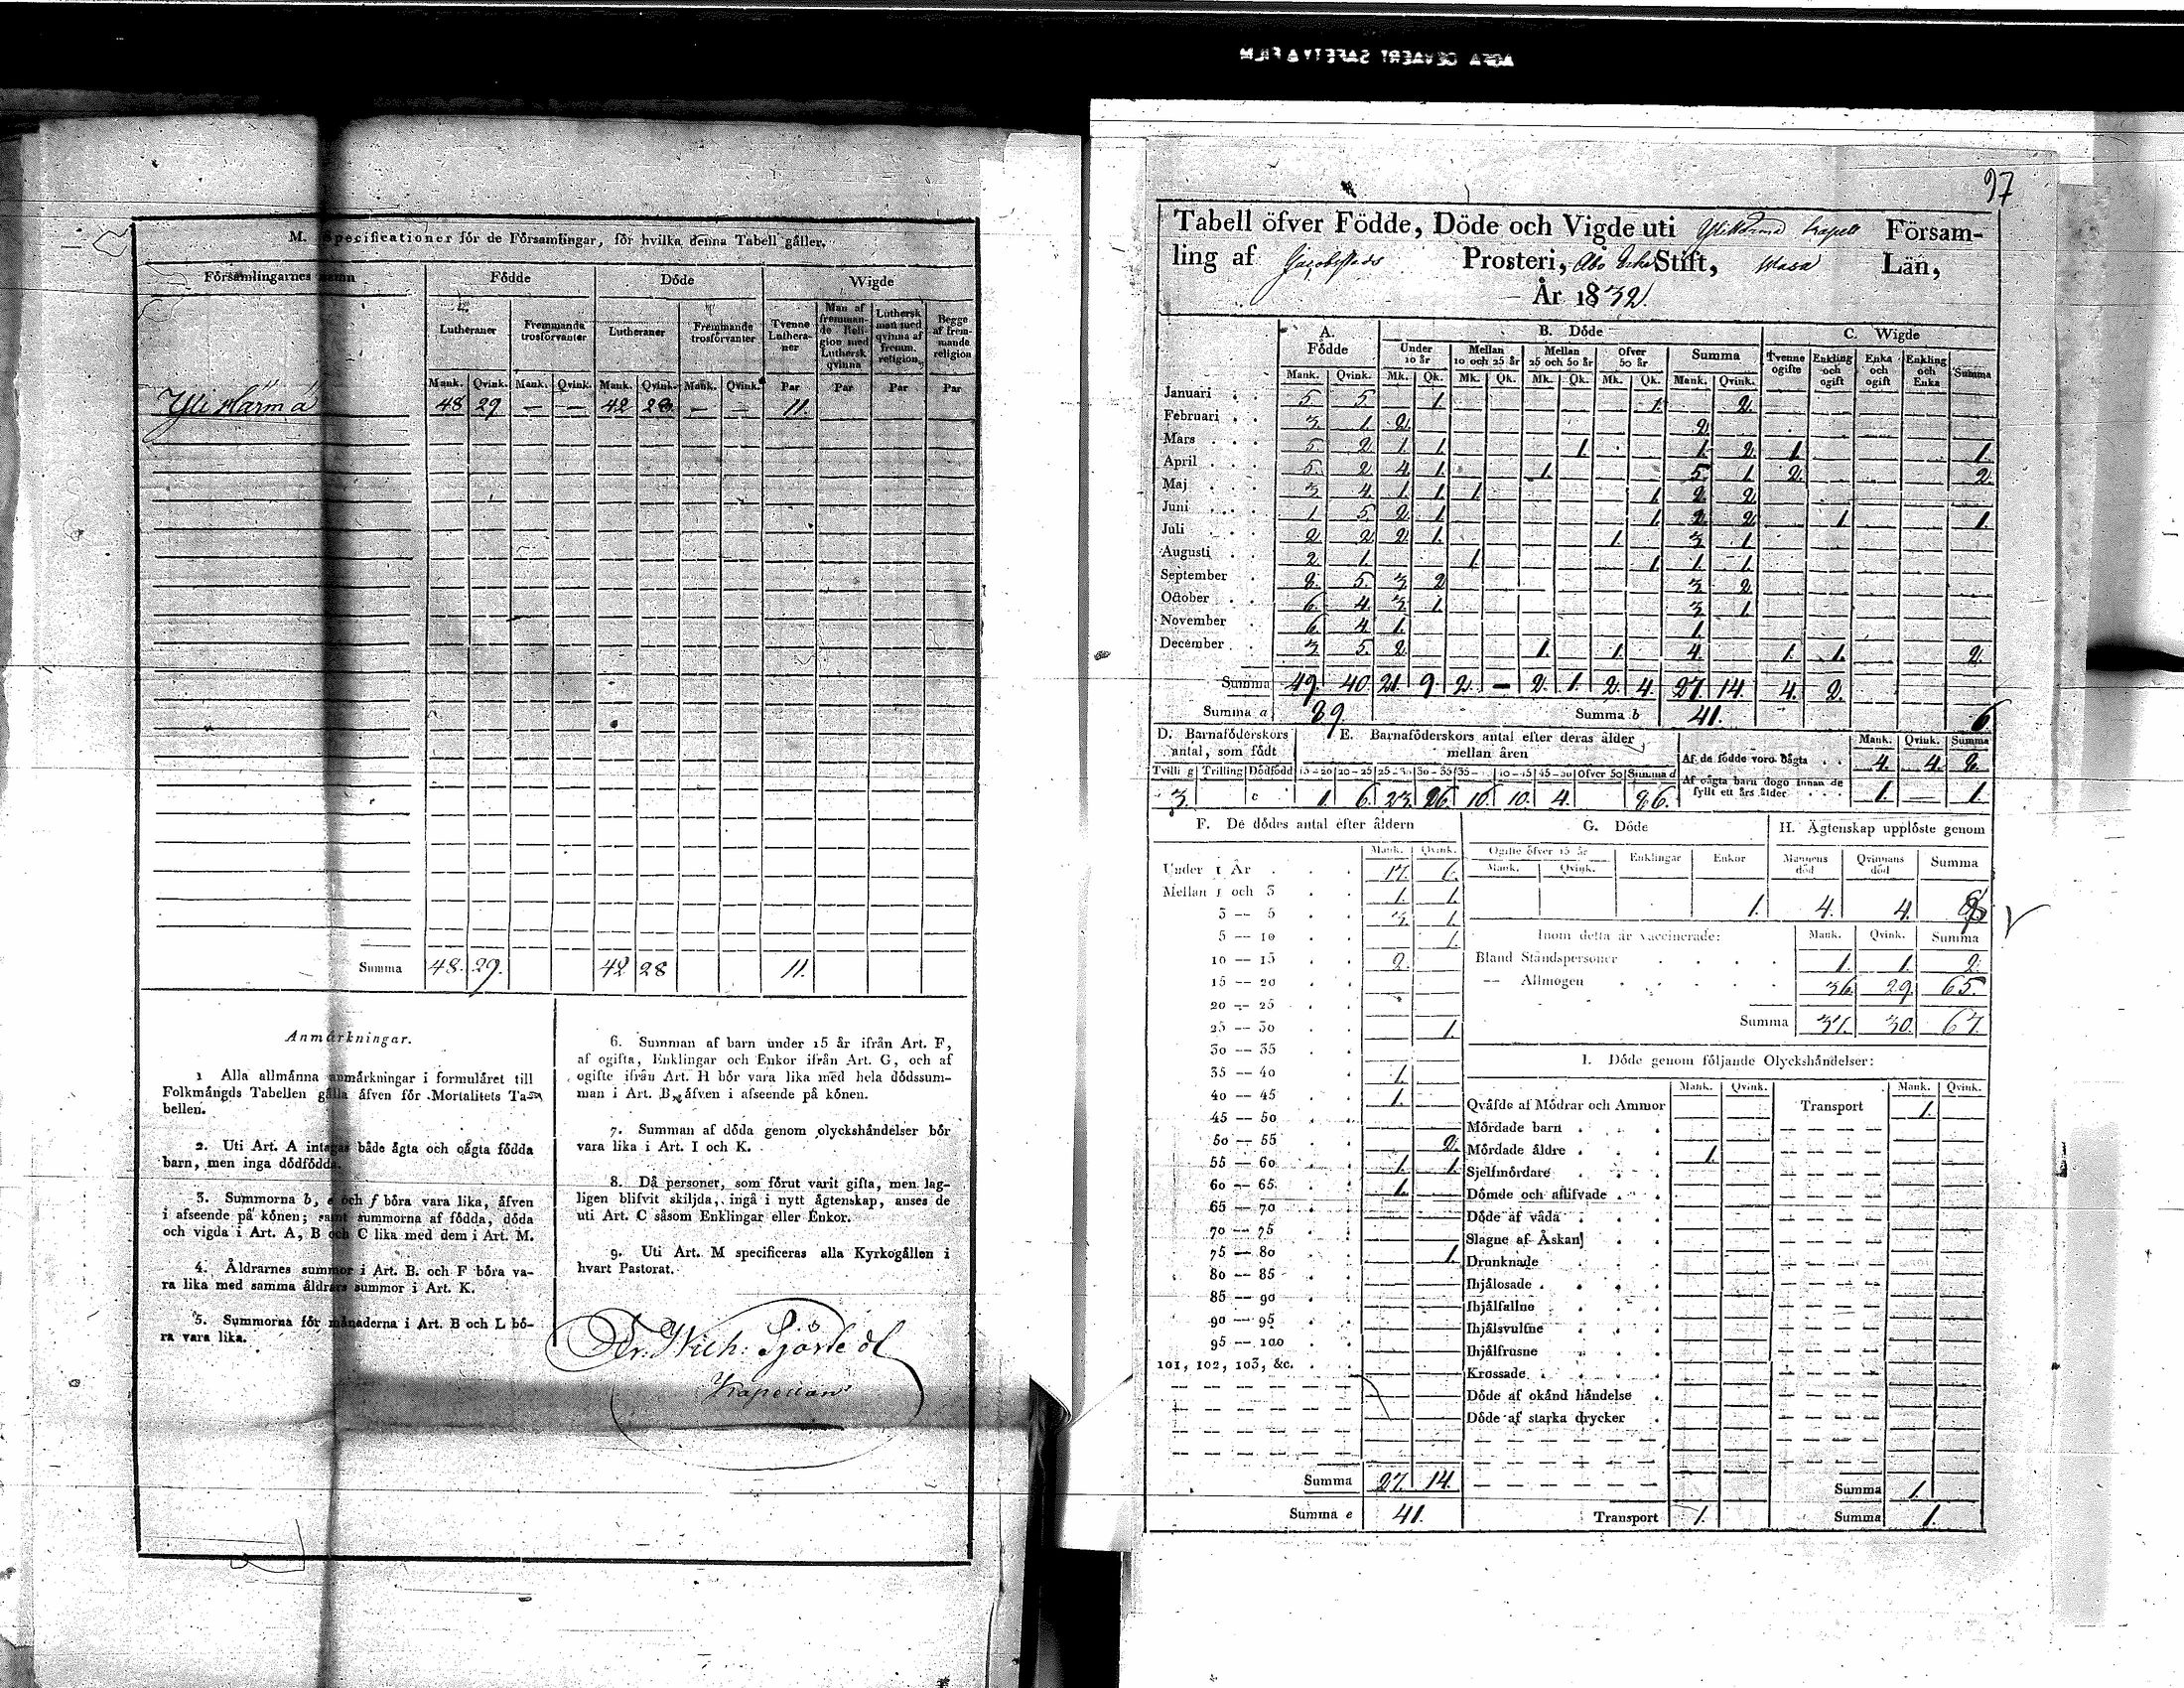 AGFA GEVAERT SAFETY FILM
M. Specificationer för de Församlingar, för hvilka denna Tabell gäller.
Församlingarnes namn Födde Döde Wigde
Lutheraner Fremmande trosförvanter Lutheraner Fremmande trosförvanter Tvenne Lutheraner Man af fremmande Religion med Luthersk qvinna Luthersk man med qvinna af fremm. religion Begge af fremmande religion
Mank. Qvink. Mank. Qvink. Mank. Qvink. Mank. Qvink. Par Par Par Par
Yli Härmä 48 29 — — 42 28 — — 11.
Summa 48. 29. 42 28 11.
Anmärkningar.
1 Alla allmänna anmärkningar i formuläret till
Folkmängds Tabellen gälla äfven för Mortalitets Ta-
bellen.
2. Uti Art. A intagas både ägta och oägta födda
barn, men inga dödfödda.
3. Summorna b, e och f böra vara lika, äfven
i afseende på könen; samt summorna af födda, döda
och vigda i Art. A, B och C lika med dem i Art. M.
4. Åldrarnes summor i Art. B. och F böra va-
ra lika med samma åldrars summor i Art. K.
5. Summorna för månaderna i Art. B och L bö-
ra vara lika.
6. Summan af barn under 15 år ifrån Art. F,
af ogifta, Enklingar och Enkor ifrån Art. G, och af
ogifte ifrån Art. H bör vara lika med hela dödssum-
man i Art. B, äfven i afseende på könen.
7. Summan af döda genom olyckshändelser bör
vara lika i Art. I och K.
8. Då personer, som förut varit gifta, men lag-
ligen blifvit skiljda, ingå i nytt ägtenskap, anses de
uti Art. C såsom Enklingar eller Enkor.
9. Uti Art. M specificeras alla Kyrkogällen i
hvart Pastorat.
Kapellan
97
Tabell öfver Födde, Döde och Vigde uti Ylihärmä Kapell Försam-
ling af Jacobstads Prosteri, Åbo Erke Stift, Wasa Län,
År 1832.
A. Födde B. Döde C. Wigde
Under 10 år Mellan 10 och 25 år Mellan 25 och 50 år Öfver 50 år Summa Tvenne ogifte Enkling och ogift Enka och ogift Enkling och Enka Summa
Mank. Qvink. Mk. Qk. Mk. Qk. Mk. Qk. Mk. Qk. Mank. Qvink.
Januari 5. 5. 1. 1. 2.
Februari 3 1. 2. 2
Mars 5. 2 1. 1 1 1. 2. 1. 1.
April 5. 2 4. 1. 1. 5. 1 2. 2.
Maj 3 4. 1. 1. 1 1. 2. 2.
Juni 1 5. 2. 1 1. 2. 2 1 1.
Juli 2. 2 2. 1. 1. 3. 1.
Augusti 2 1. 1. 1. 1. 1.
September 8. 5. 3 2 3 2.
October 6. 4. 3. 1. 3. 1
November 6. 4 1. 1.
December 3 5. 2. 1. 1. 4. 1. 1. 2.
Summa 49. 40. 21. 9. 2. — 2. 1. 2. 4. 27. 14. 4. 2.
Summa a 89. Summa b 41. 6
D. Barnaföderskors antal, som födt E. Barnaföderskors antal efter deras ålder mellan åren Mank. Qvink. Summa
Af de födde voro oägta 4. 4. 8.
Tvilling Trilling Dödfödd 15–20 20–25 25–30 30–35 35– 40–45 45–50 Öfver 50 Summa d
Af oägta barn dogo innan de fyllt ett års ålder 1. — 1.
3. c 1. 6. 23. 26. 10. 10. 4. 86.
F. De dödes antal efter åldern
Mank. Qvink.
Under 1 År 17. 6.
Mellan 1 och 3 1. 1.
3 — 5 3. 1.
5 — 10 1.
10 — 15 2.
15 — 20
20 — 25
25 — 30 1.
30 — 35
35 — 40 1.
40 — 45 1.
45 — 50
50 — 55 2.
55 — 60 1. 1.
60 — 65 1.
65 — 70
70 — 75
75 — 80 1.
80 — 85
85 — 90
90 — 95
95 — 100
101, 102, 103, &c.
Summa 27. 14.
Summa e 41.
G. Döde H. Ägtenskap upplöste genom
Ogifte öfver 15 år Enklingar Enkor Mannens död Qvinnans död Summa
Mank. Qvink.
1. 4. 4. 8
Inom detta år vaccinerade: Mank. Qvink. Summa
Bland Ståndspersoner 1. 1. 2.
— Allmogen 36. 29. 65.
Summa 37. 30. 67.
I. Döde genom följande Olyckshändelser:
Mank. Qvink. Mank. Qvink.
Qväfde af Mödrar och Ammor Transport 1.
Mördade barn
Mördade äldre 1.
Sjelfmördare
Dömde och aflifvade
Döde af våda
Slagne af Åskan
Drunknade
Ihjälosade
Ihjälfallne
Ihjälsvultne
Ihjälfrusne
Krossade
Döde af okänd händelse
Döde af starka drycker
Summa 1.
Transport 1. Summa 1.